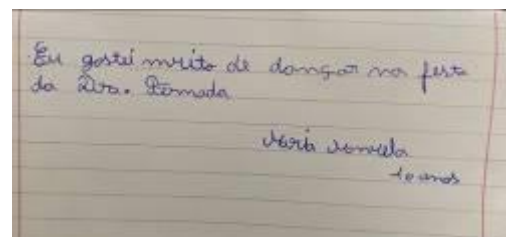 Eu gostei muito de dançar na fest
da Dra. Pomada
Maria Manuela
10 anos